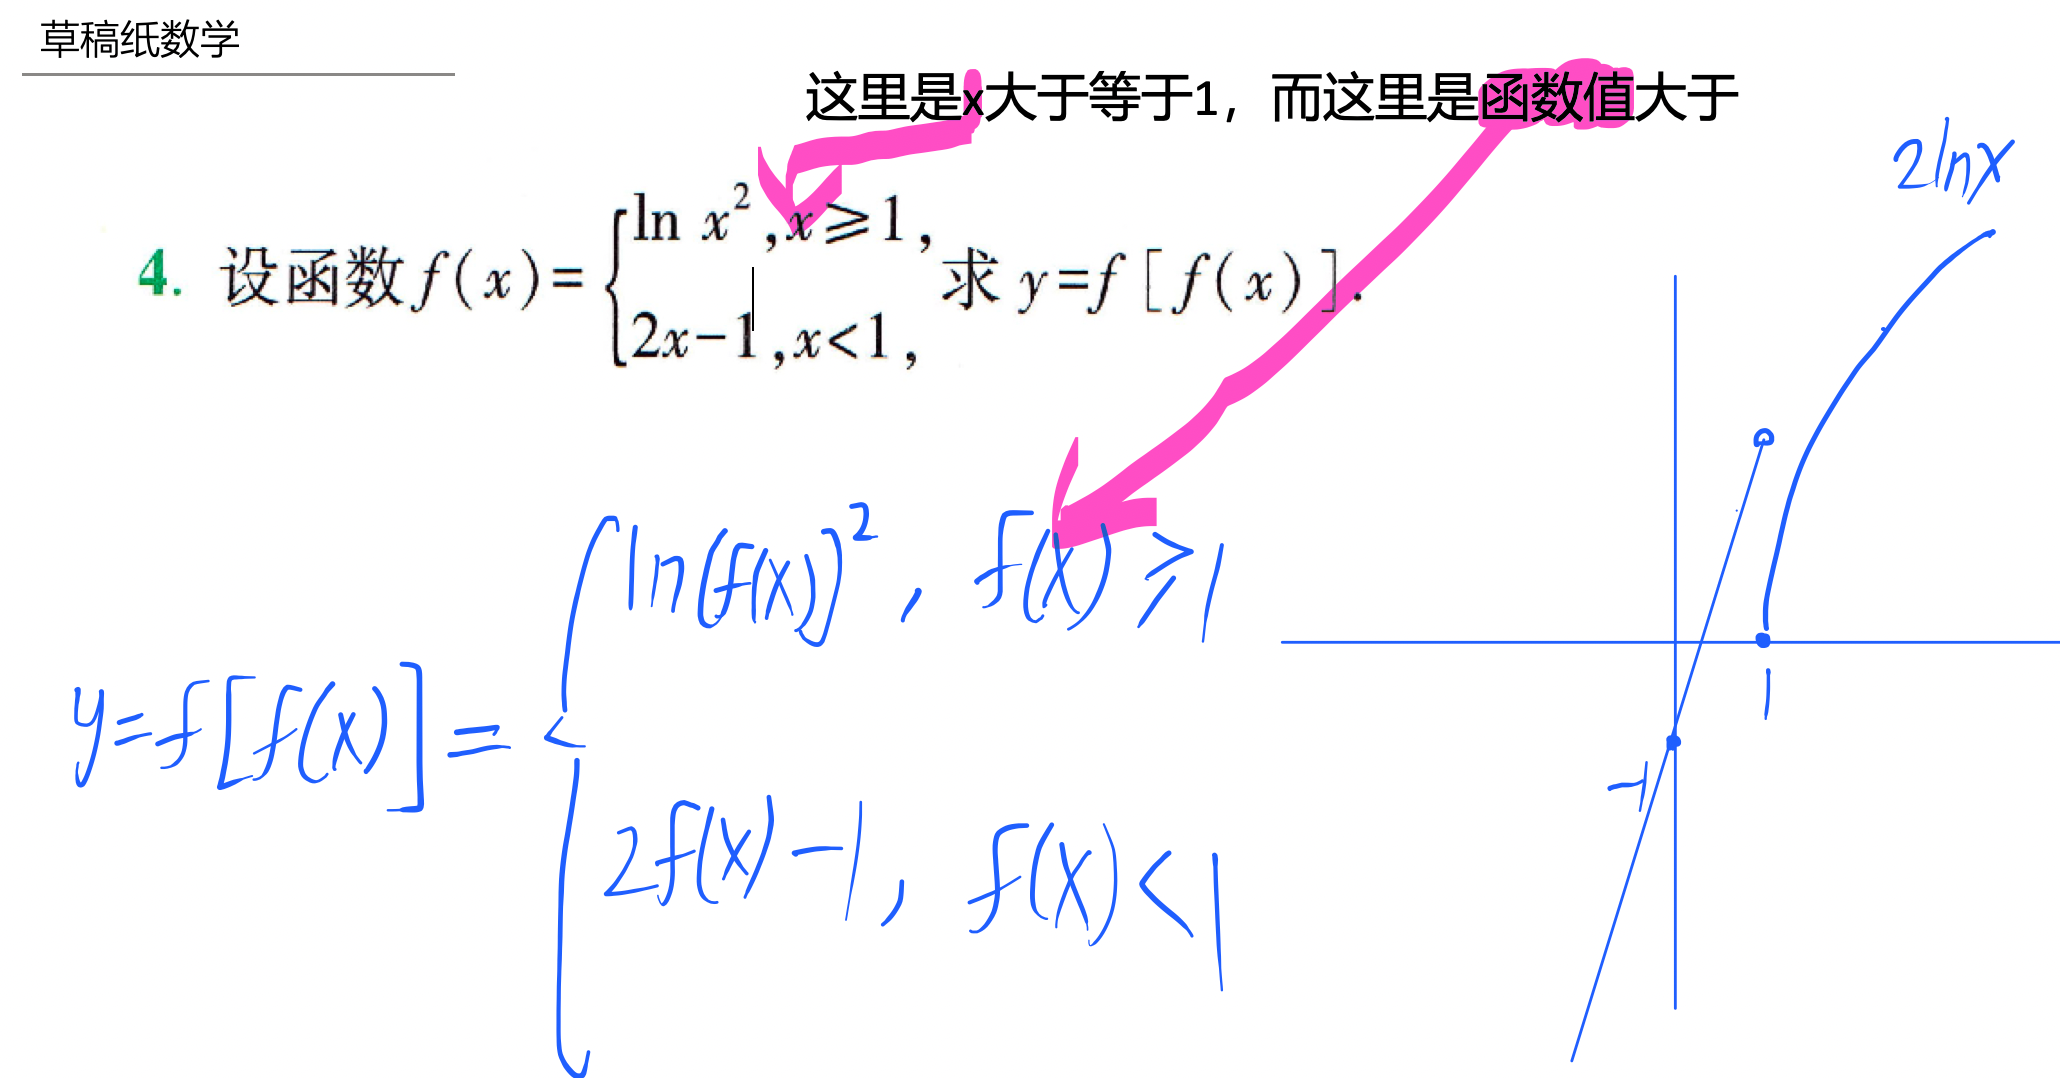 草稿纸数学
这里是x大于等于1，而这里是函数值大于
2lnx
4. 设函数f(x)={ln x²,x≥1,
2x-1,x<1,
求 y=f[f(x)].
y=f[f(x)]={ln(f(x))², f(x)≥1
2f(x)-1, f(x)<1
1
-1